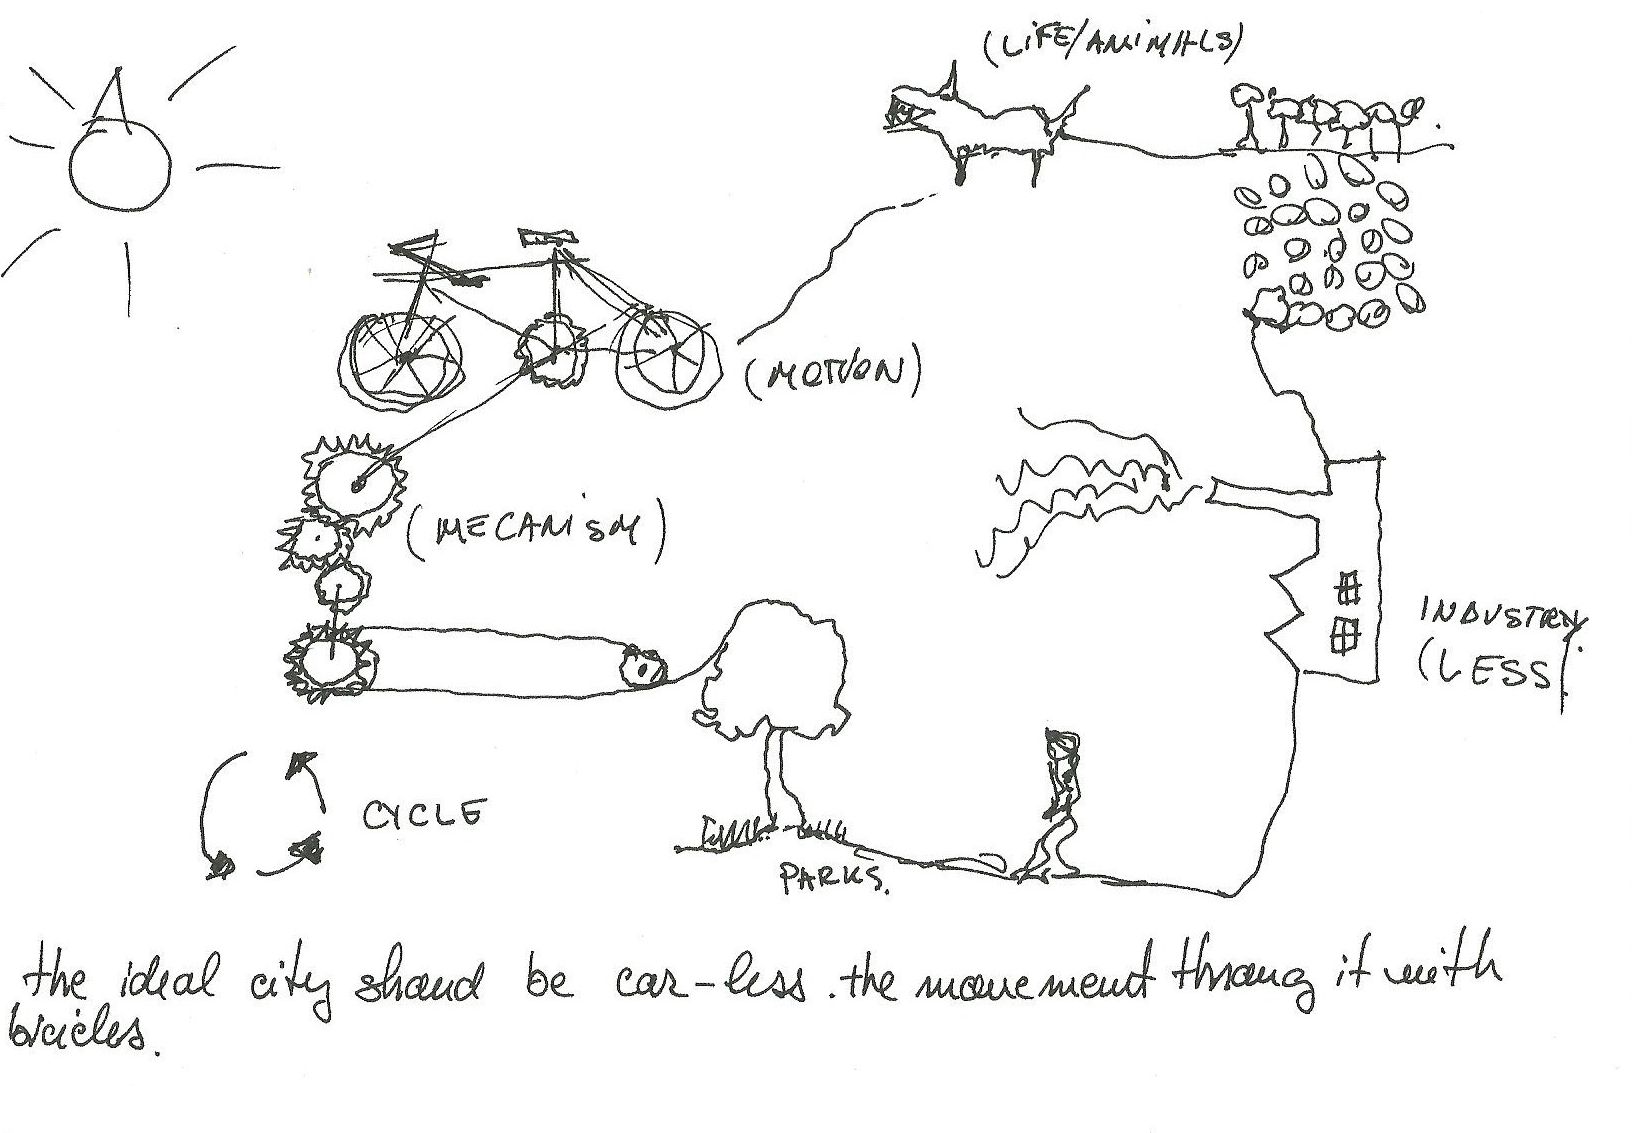 (LiFE/ANiMALS)
(MOTION)
(MECANiSM)
INDUSTRY.
(LESS)
CYCLE
PARKS.
the ideal city shoud be car-less. the movement throug it with
bicicles.